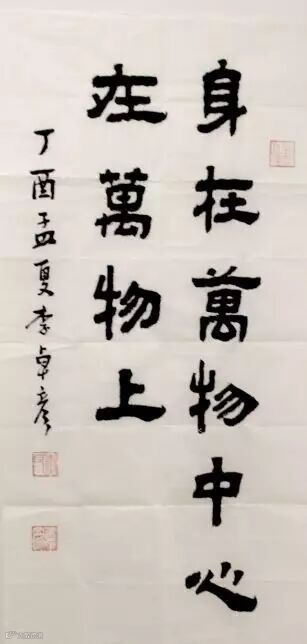 身在萬物中心
在萬物上
丁酉孟夏李卓彦